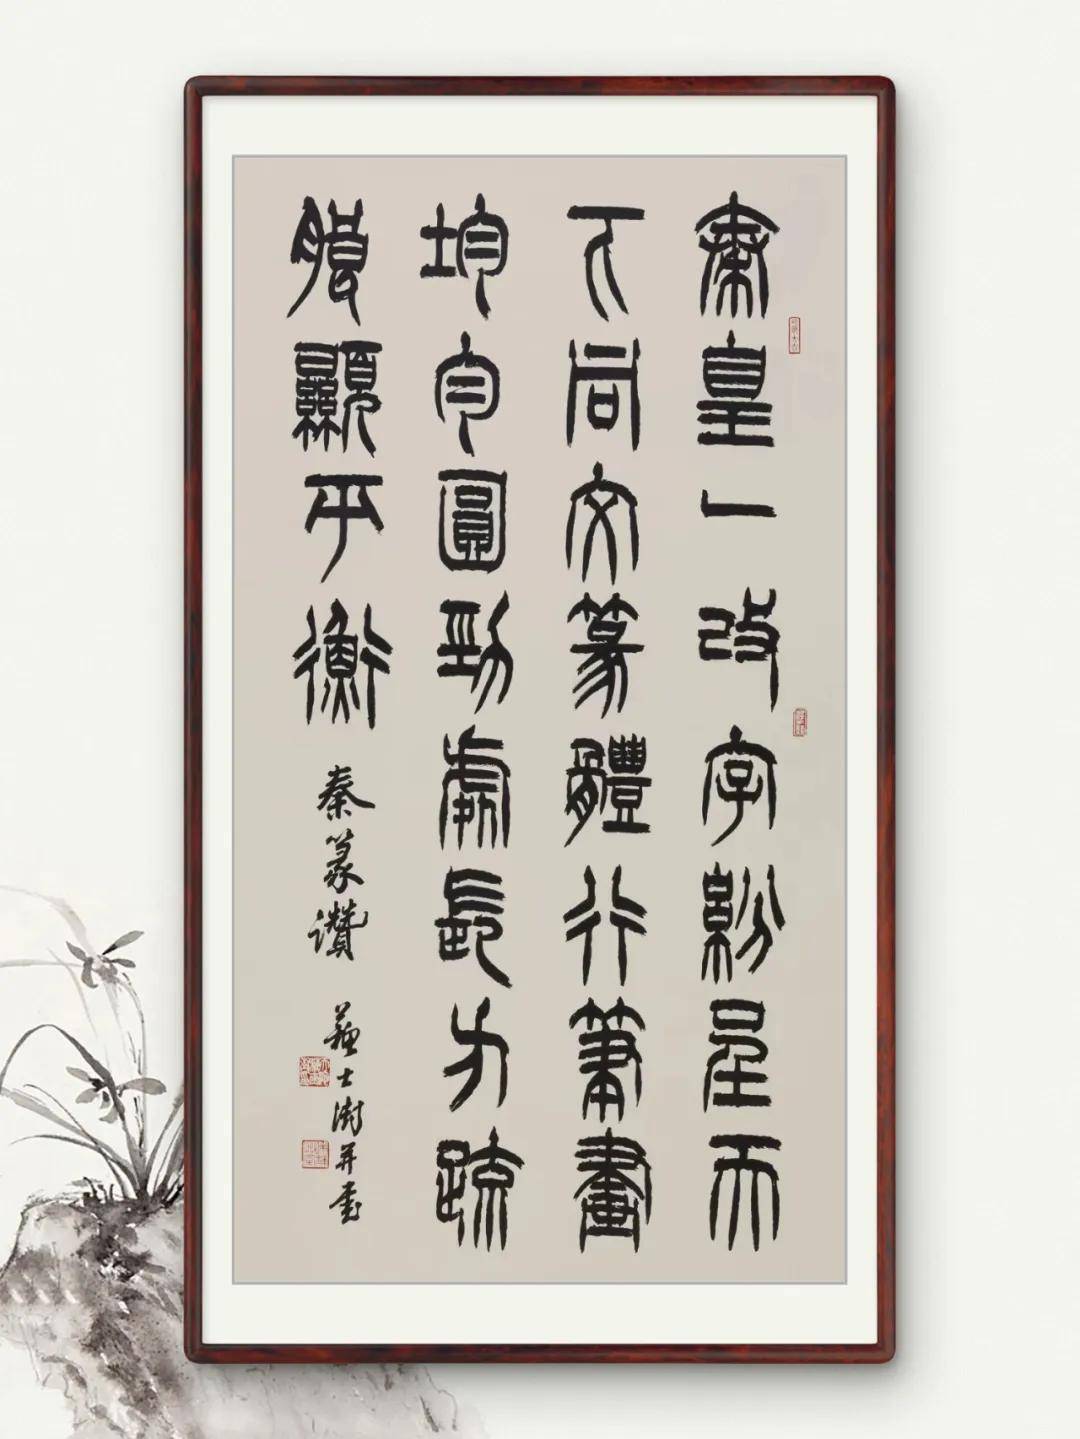 秦皇一改字紛呈天
下同文篆體行筆畫
均勻圓勁處長方疏
朖顯平衡 秦篆讚 蘇士澍并書